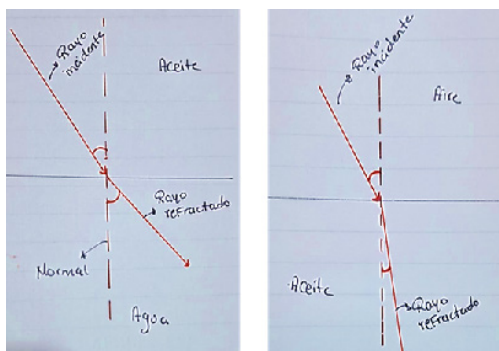 Rayo
incidente
Aceite
Rayo
refractado
Normal
Agua
Rayo
incidente
Aire
Aceite
Rayo
refractado